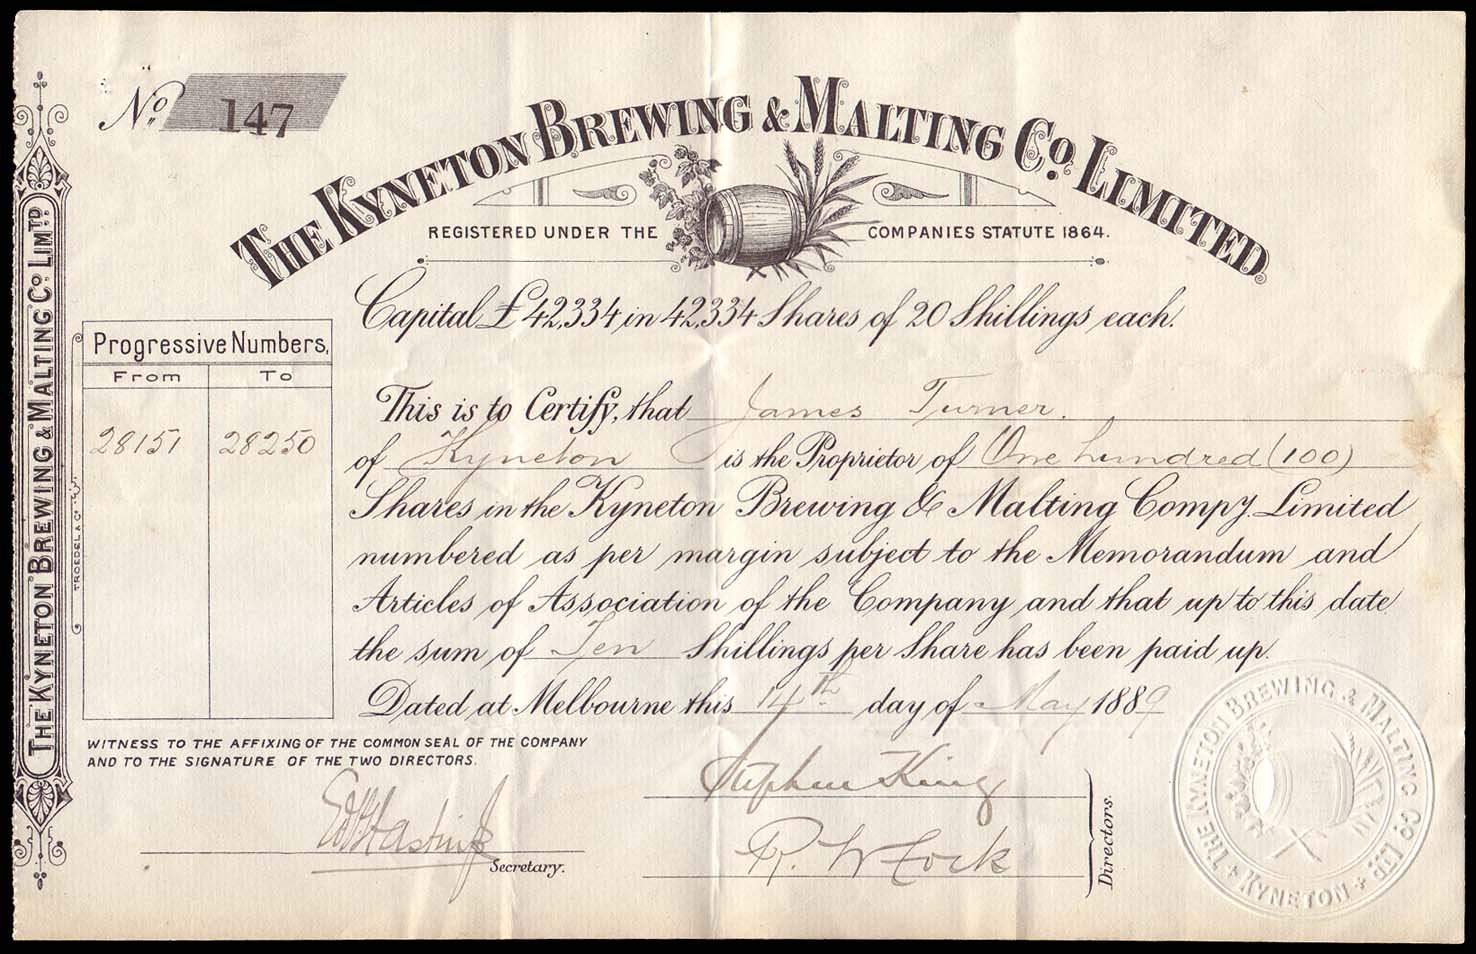 No. 147
THE KYNETON BREWING & MALTING Co. LIMITED
REGISTERED UNDER THE COMPANIES STATUTE 1864.
Capital £42,334 in 42,334 Shares of 20 Shillings each.
THE KYNETON BREWING & MALTING Co. LIMTD.
Progressive Numbers,
From To
28151 28250
TROEDEL & Co.
This is to Certify, that James Turner.
of Kyneton is the Proprietor of One hundred (100)
Shares in the Kyneton Brewing & Malting Compy. Limited
numbered as per margin subject to the Memorandum and
Articles of Association of the Company and that up to this date
the sum of Ten Shillings per Share has been paid up.
Dated at Melbourne this 14th day of May 1889
WITNESS TO THE AFFIXING OF THE COMMON SEAL OF THE COMPANY
AND TO THE SIGNATURE OF THE TWO DIRECTORS.
Stephen King
R. W Cock
Directors.
Secretary.
THE KYNETON BREWING & MALTING Co LTD
KYNETON